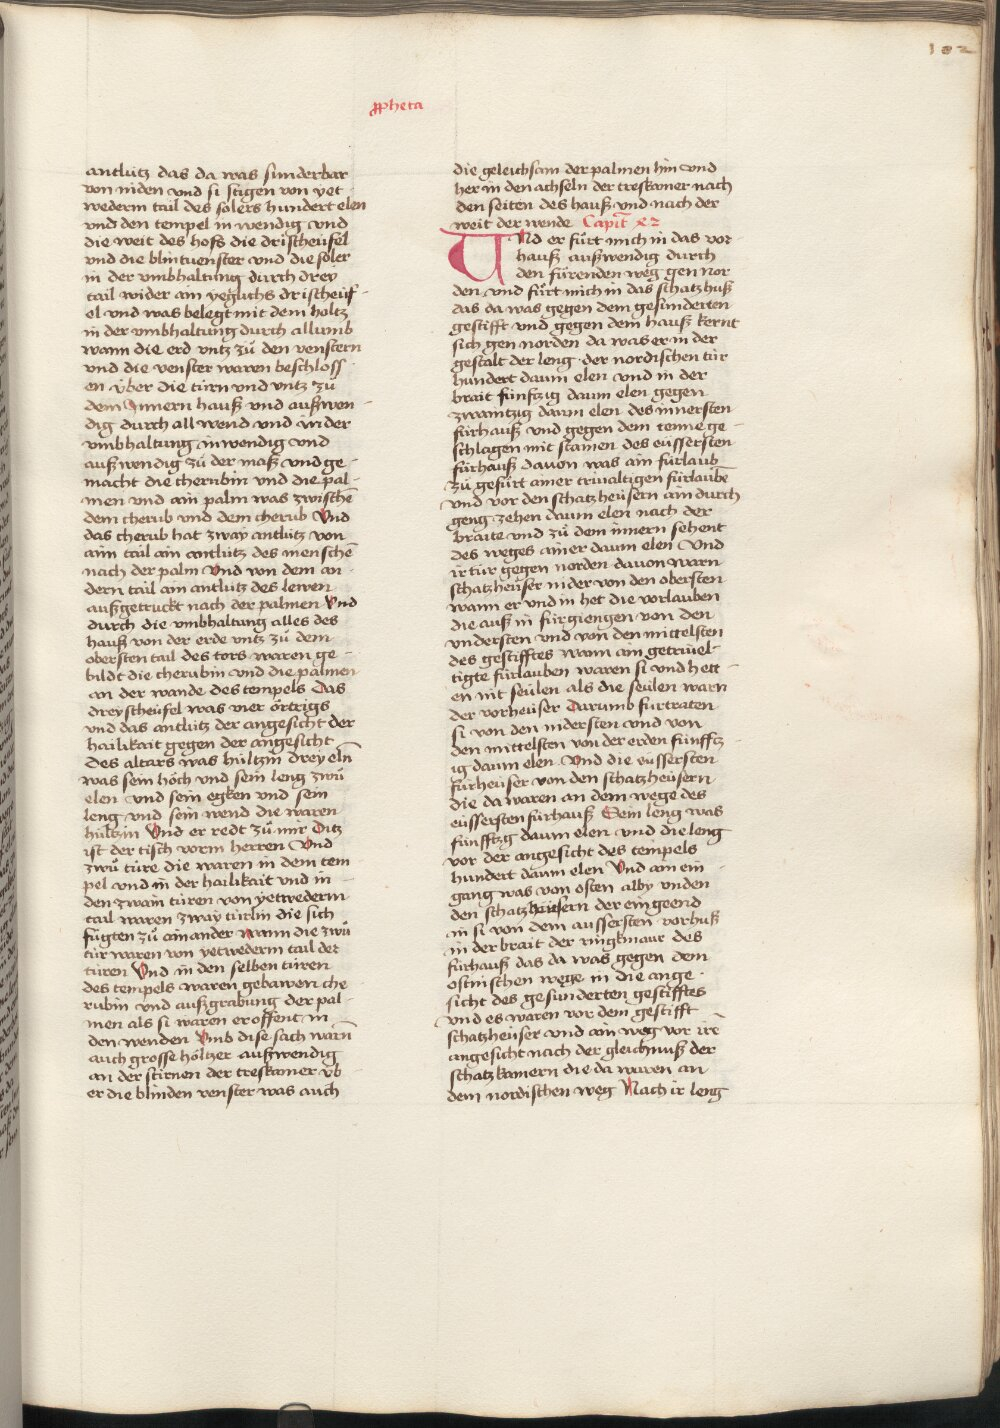 102
ꝓpheta
antlütz das da was sunderbar
von niden vnd si stigen von yet
wederm tail des solers hundert elen
vnd den tempel in wendig vnd
die weit des hofs die drischeüfel
vnd die blintuenster vnd die soler
in der vmbhaltung durch drey
tail wider ain yeglichs drischeuf-
el vnd was belegt mit dem holtz
in der vmbhaltung durch all vmb
wann die erd vntz zů den venstern
vnd die venster waren beschloss-
en v̈ber die türn vnd vntz zů
dem Innern hauß vnd außwen-
dig durch all wend vnd in der
vmbhaltung inwendig vnd
außwendig zů der maß vnd ge-
macht die cherubin vnd die pal-
men vnd ain palm was zwischē
dem cherub vnd dem cherub Vnd
das cherub hat zway antlütz von
aim tail ain antlütz des menschē
nach der palm Vnd von dem an-
dern tail ain antlütz des lewen
außgetruckt nach der palmen Vnd
durch die vmbhaltung alles des
hauß von der erde vntz zů dem
obersten tail des tors waren ge-
bildt die cherubin vnd die palmen
an der wande des tempels Das
dreyscheüfel was vier örtrigs
vnd das antlütz der angesicht der
hailikait gegen der angesicht
des altars was hültzin drey eln
was sein höch vnd sein leng zwů
elen vnd sein egken vnd sein
leng vnd sein wend die waren
hültzin Vnd er redt zů mir Ditz
ist der tisch vorm herren Vnd
zwů türe die waren in dem tem
pel vnd in der hailikait vnd in
den zwain türen von yetwederm
tail waren zway türlin die sich
fügten zů ainander wann die zwů
tür waren von yetwederm tail der
türen Vnd in den selben türen
des tempels waren gebawen che
rubin vnd außgrabung der pal-
men als si waren eroffent in
den wenden Vmb dise sach warn̄
auch grosse höltzer außwendig
an der stirnen der treskamer v̈b
er die blinden venster was auch
die geleichsam der palmen hin vnd
her in den achseln der treskamer nach
den seiten des hauß vnd nach der
weit der wende Capit̄ x2
VNd er fürt mich in das vor-
hauß außwendig durch
den fürenden weg gen nor
den vnd fürt mich in das schatzhuß
das da was gegen dem gesunderten
gestifft vnd gegen dem hauß kernt
sich gen norden da was er in der
gestalt der leng der nordischen tür
hundert daum elen vnd in der
brait fünftzig daum elen gegen
zwaintzig daum elen des innersten
fürhauß vnd gegen dem tenne ge-
schlagen mit stainen des eüssersten
fürhauß dauon was ain fürlaub
zů gefürt ainer triualtigen fürlaube
vnd vor den schatzheüsern ain durch
geng zehen daum elen nach der
braite vnd zů dem innern sehent
des weges ainer daum elen Vnd
ir tür gegen norden dauon warn
schatzheüser nider von den obersten
wann er vnd in het die vorlauben
die auß in fürgiengen von den
vndersten vnd von den mittelsten
des gestifftes wann ain getriuel-
tigte fürlauben waren si vnd hett-
en nit seülen als die seülen warn
der vorheüser Darumb fürtraten
si von den nidersten vnd von
den mittelsten von der erden fünfftz-
ig daum elen Vnd die eüssersten
fürheüser von den schatzheüsern
die da waren an dem wege des
eüssersten fürhauß Sein leng was
fünfftzg daum elen vnd die leng
vor der angesicht des tempels
hundert daum elen Vnd ain ein-
gang was von osten alby vnden
den schatzheüsern der eingeend
in si von dem aussersten vorhuß
in der brait der ringkmaur des
fürhauß das da was gegen dem
ostnischen wege in die ange-
sicht des gesunderten gestifftes
vnd es waren vor dem gestifft
schatzheüser vnd ain weg vor ire
angesicht nach der gleichnuß der
schatzkamern die da waren an
dem nordischen weg Nach ir leng